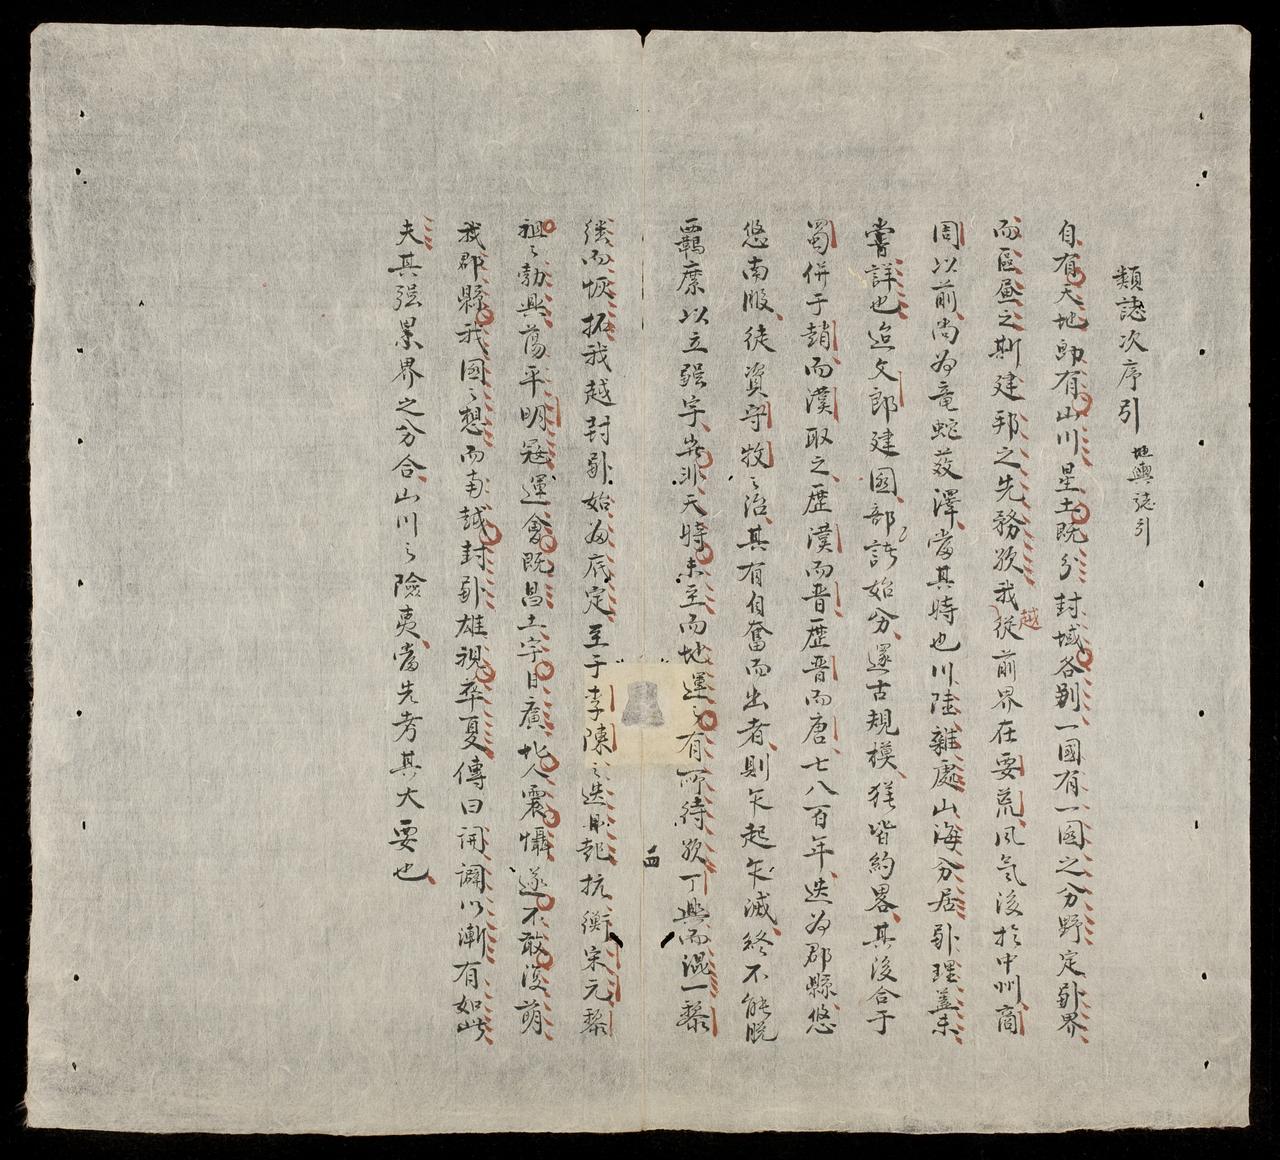 類誌次序引 地輿誌引
自有天地即有山川星土既分封域各别一國有一國之分野定卧界
而區畫之斯建邦之先務欤我越從前界在要荒風氣後於中州商
周以前尚為竜蛇薮澤當其時也川陸雜處山海分居卧理盖未
嘗詳也迨文郎建國部〻始分邃古規模猶皆約畧其後合于
蜀併于趙而漢取之歷漢而晋歷晋而唐七八百年迭為郡縣悠
悠南服徒資守牧〻治其有自奮而出者則乍起乍滅終不能脱
羈縻以立疆宇非天時未至而地運〻有所待欤丁興而混一黎
継而恢拓我越封卧始為底定至于李陳〻迭起抗衡宋元黎
祖〻勃興蕩平明冦運會既昌土宇日廣北人震慑遂不敢復萌
我郡縣我國〻想而南越封卧雄視華夏傳曰開闢以漸有如此
夫其疆界之分合山川〻險夷當先考其大要也
四